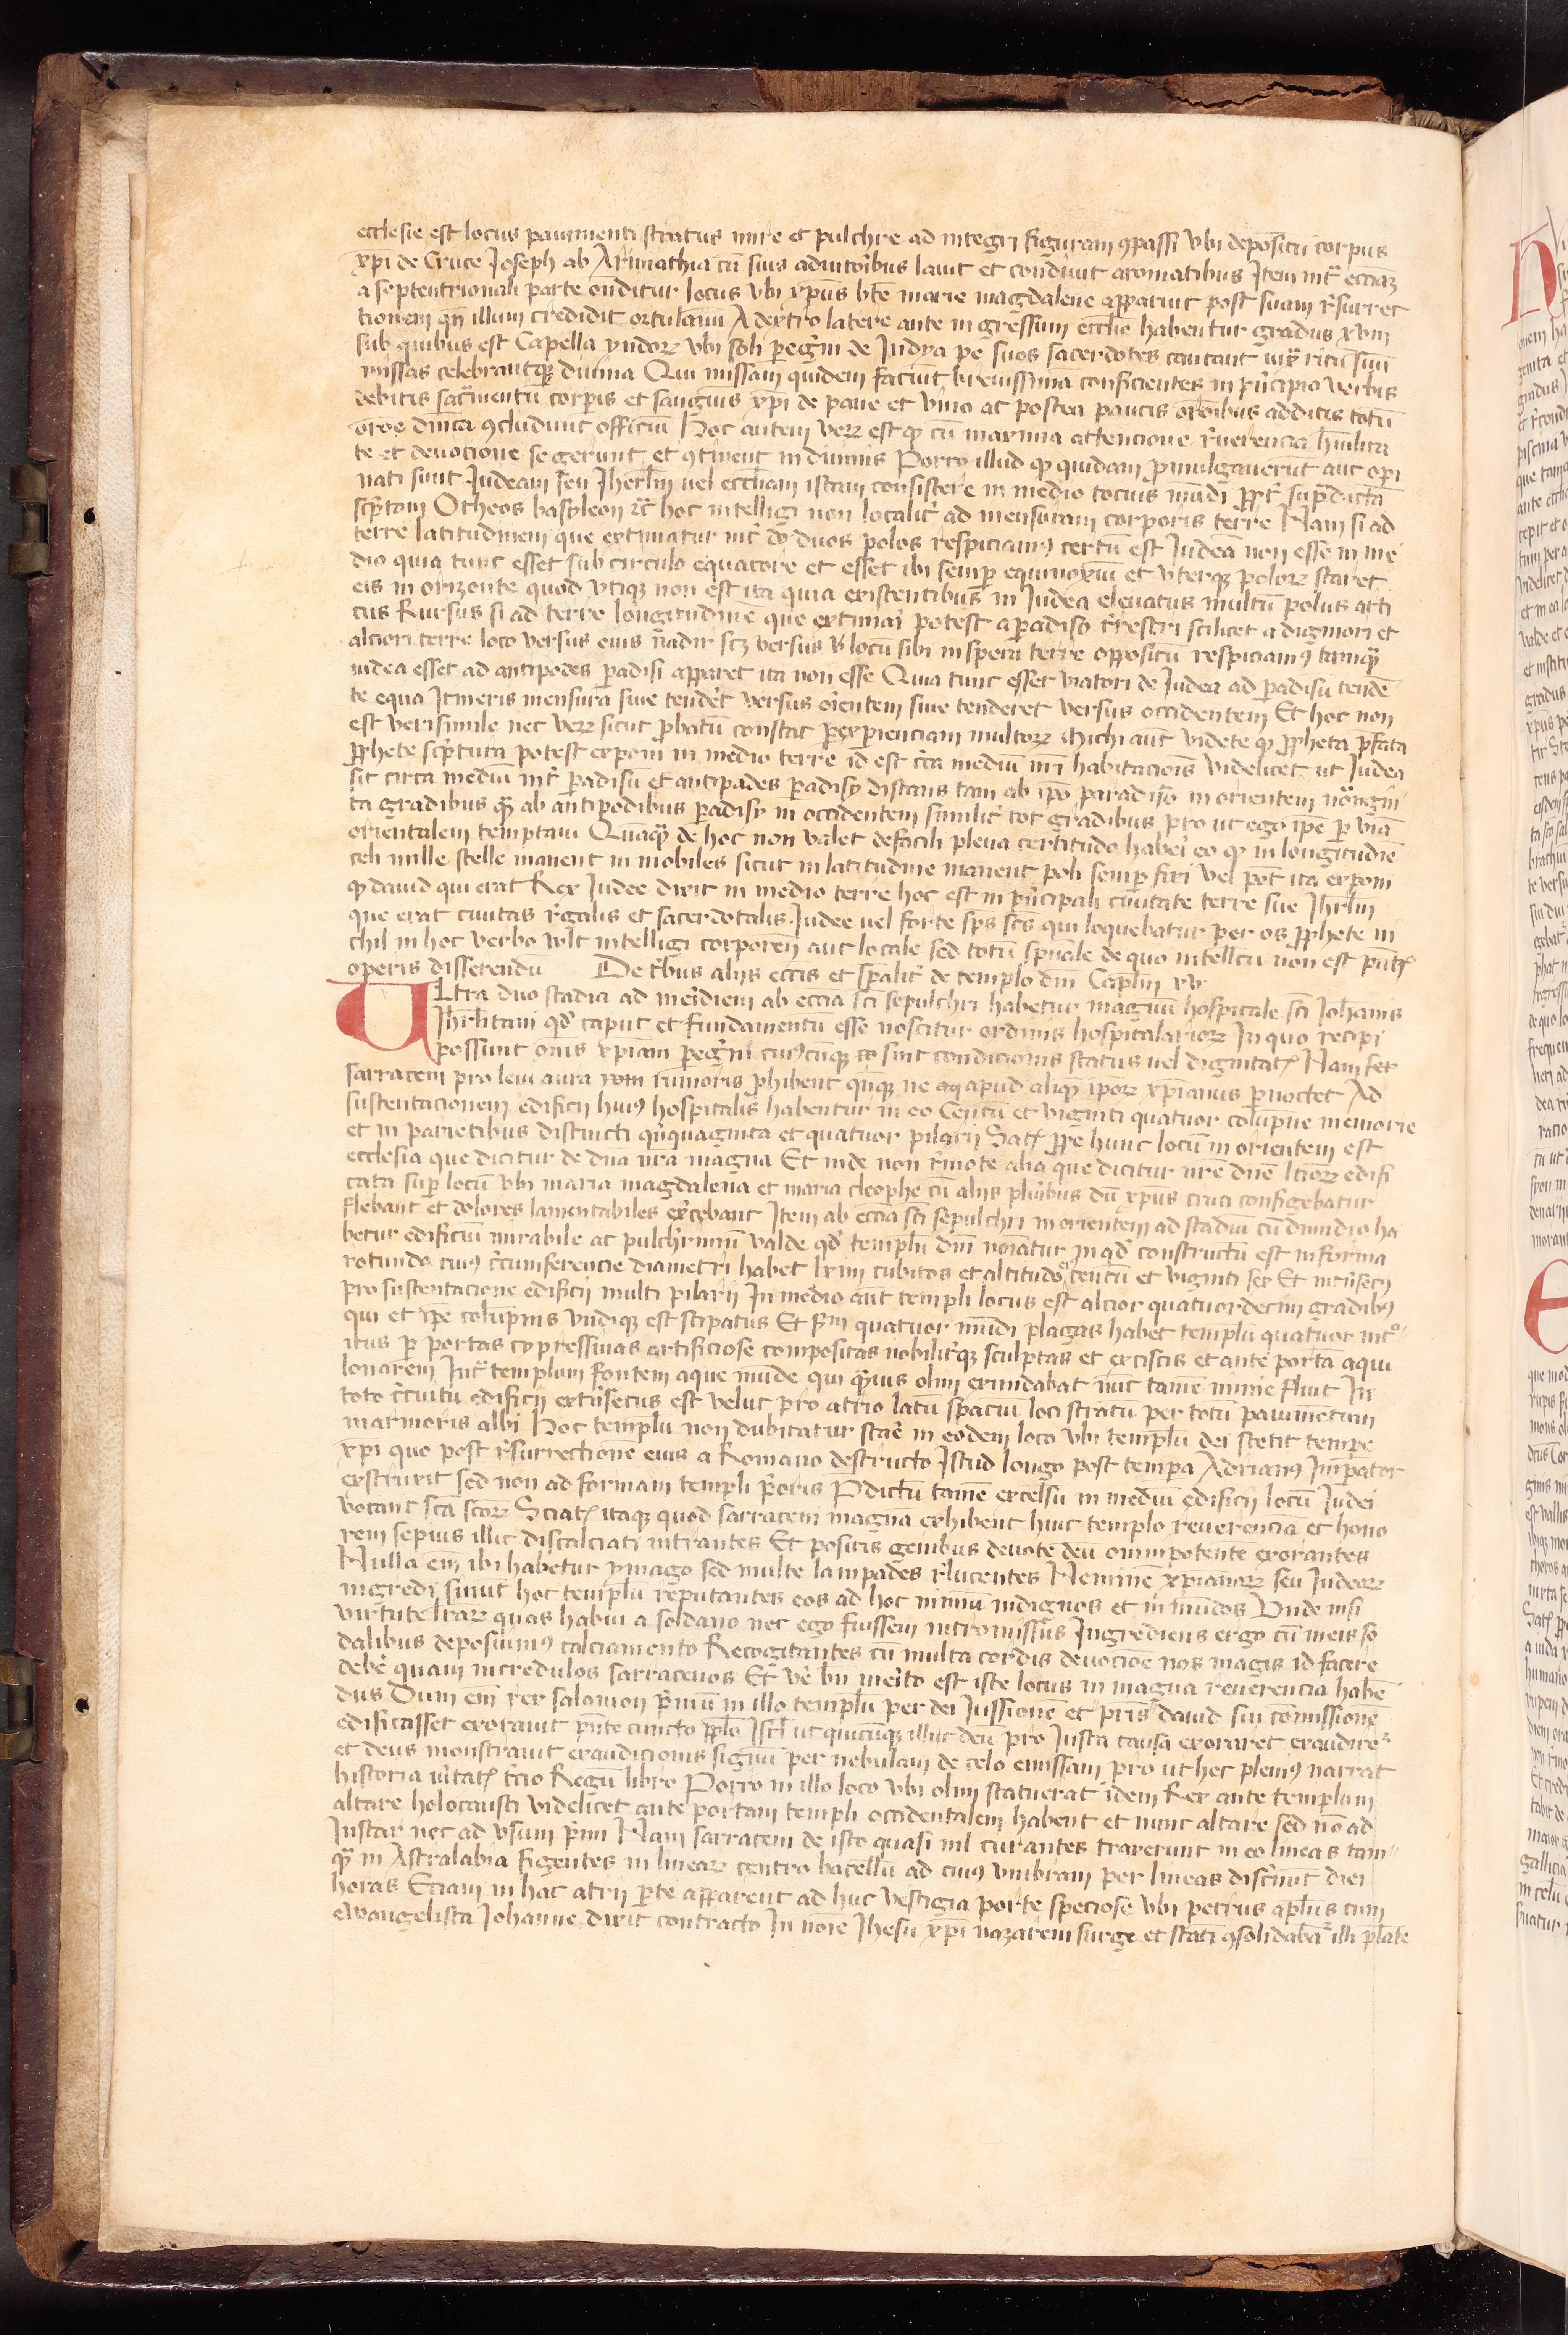 ecclesie est locus pauimenti stratus mire et pulchre ad integri figuram ꝯpassi vbi depositū corpus
xp̄i de Cruce Joseph ab Arimathia cū suis adiutoribus lauit et condiuit aromatibus Item int̉ eccīaꝫ
a septentrionali parte ondītur locus vbi xp̄us bt̄e marie magdalene apparuit post suam r̉surrec
tionem qn̄ illum credidit ortulanū A dextro latere ante ingressum eccl̄ie habentur gradus xviij
sub quibus est Capella yndoꝝ vbi soli pegr̉ni de Indya pe suos sacerdotes cantant iux̄ ritū suū
missas celebrantqꝫ diuina Qui missam quidem faciūt breuissimā conficientes in pn̉cipio verbis
debitis sacr̉mentū corpīs et sanguīs xp̄i de pane et vino ac postea paucis orōibus additis totū
orōe dnīca ꝯcludunt officiū Hoc autem veꝝ est qꝫ cū maxima attencione r̉uerencia hūilita
te et deuotione se gerunt et ꝯtinent in diuinis Porro illud qꝫ quidam pmulgauerūt aut opi
nati sunt Judeam seu Jherlm̄ uel eccl̄iam istam consistere in medio tocius mūdi ppt̉ supradictā
scp̉tam Otheos basyleon ⁊c̄ hoc intelligi non localit̉ ad mensuram corporis terre Nam si ad
terre latitudinem que extimatur int̉ dy duos polos respiciamꝰ certū est Judeā non esse in me
dio quia tunc esset sub circulo equatore et esset ibi semp equinoxiū et vterqꝫ poloꝝ staret
eis in orizonte quod vtiqꝫ non est ita quia existentibus in Judea eleuatus multū polus arti
cus Rursus si ad terre longitudinē que extimari potest a padiso tr̉restri scilicet a digniori et
alciori terre loco versus eius nadir scꝫ versus locū sibi in spera terre oppositū respiciamꝰ tamqꝫ
iudea esset ad antipodes padisi apparet ita non esse Quia tunc esset viatori de Judea ad padisū tendē
te equa Itineris mensura siue tender̉t versus orientem siue tenderet versus occidentem Et hoc non
est verisimile nec veꝝ sicut pbatū constat p expienciam multoꝝ Michi aūt videtᵉ qꝫ ppheta pfata
pphete scp̉tura potest exponi in medio terre id est cr̉ca mediū nr̄i habitacionis videlicet ut Judea
sit circa mediū int̉ padisū et antipades padisy distans tam ab ip̄o paradiso in orientem nonagin
ta gradibus qꝫ ab antipodibus padisy in occidentem similit̉ tot gradibus pro ut ego ip̄e p viā
orientalem temptaui Quāqꝫ de hoc non valet defacili plena certitudo haberi eo qꝫ in longitudīe
celi nille stelle manent inmobiles sicut in latitudine manent poli semp fixi vel pot̄ ita exponi
qꝫ dauid qui erat Rex Judee dixit in medio terre hoc est in pn̉cipali ciuitate terre sue Jhrlm̄
que erat ciuitas r̉galis et sacerdotalis Judee uel forte sp̄s sc̄s qui loquebatur per os pphete ni
chil in hoc verbo vult intelligi corporeū aut locale sed totū sp̄uale de quo intellectu non est
operis disserendū De tribus alijs eccīis et sp̄alit̉ de templo dnī Caplm̄ xv
Vltra duo stadia ad meridiem ab eccīa sc̄i sepulchri habetur magnū hospitale sc̄i Johanis
Jhrl̄itani qd̉ caput et fundamentū esse noscitur ordinis hospitalarioꝝ In quo recipi
possunt om̄s xp̄iani pegr̉ni cuiꝰcūqꝫ sint condicionis status uel dignitatꝭ Nam
sarraceni pro leui aura rumoris phibent qn̄qꝫ ne apud aliqꝫ ip̄oꝝ xp̄ianus pnoctet Ad
sustentacionem edificij huiꝰ hospitalis habentur in eo Centū et viginti quatuor colūpne memorie
et in parietibus distincti qn̉quaginta et quatuor pilarij Satꝭ ppe hunc locū in orientem est
ecclesia que dicitur de dn̄a nr̄a magna Et inde non r̉mote alia que dicitur nr̄e dn̄e edifi
cata sup locū vbi maria magdalena et maria cleophe cū alijs plīibus dū xp̄us cruci configebatur
flebant et dolores lamentabiles ex̉cebant Item ab eccīa sc̄i sepulchri in orientem ad stadiū cū dimidio ha
betur edificiū mirabile ac pulchr̉imū valde qd̉ templū dnī noīatur In qd̉ constructū est in forma
rotunda cuiꝰ cr̉cumferencie diametri habet lxiiij cubitos et altitudo centū et viginti sex Et intr̉isecꝰ
pro sustentacione edificij multi pilarij In medio aūt templi locus est alcior quatuordecim gradibꝰ
qui et ip̄e colūpnis vndiqꝫ est stipatus Et sᵐ quatuor mūdi plagas habet templū quatuor intᵒ
itus p portas cypressinas artificiose compositas nobilit̉qꝫ sculptas et excisis et ante portā aqui
lonarem Int̉ templum fontem aque mūde qui qꝫuis olim exundabat nūc tamē minie fluit In
toto cr̉cuitu edificij extr̉isecus est velut pro atrio latū spaciū loci stratū per totū pauimētum
marmoris albi Hoc templū non dubitatur star̉ in eodem loco vbi templū dei stetit tempe
xp̄i quo post r̉surrectione eius a Romano destructo Istud longo post tempa Adrianꝰ Impator
exstruxit sed non ad formam templi pōris Pdictū tamē excelsū in mediū edificij locū Judei
vocant sc̄a sc̄oꝝ Sciatꝭ itaqꝫ quod sarraceni magnā exhibent huic templo reuerenciā et hono
rem sepius illuc discalciati intrantes Et positis genibus deuote deū omnipotentē exorantes
Nulla em̄ ibi habetur ymago sed multe lampades r̉lucentes Neminē xp̄ianoꝝ seu Judeoꝝ
ingredi sinūt hoc templū reputantes eos ad hoc nimiū indignos et in mūdos Vnde nisi
virtute lr̄aꝝ quas habui a soldano nec ego fuissem intromissus Ingrediens ergo cū meis so
dalibus deposuimꝰ calciamento Recogitantes cū multa cordis deuocioē nos magis id facere
debẻ quam incredulos sarracenos Et vẻ bn̄ mẻito est iste locus in magna reuerencia habē
dus Dum em̄ rex salomon pr̉mū in illo templū per dei Jussionē et pr̄is dauid sui comissionē
edificasset exorauit pn̄te cuncto pplō Isrl̄ ut quicūqꝫ illuc deū pro Justa causa exoraret exaudireᵗ
et deus monstrauit exaudicionis signū per nebulam de celo emissam pro ut hec pleniꝰ narrat
historia vỉtatꝭ tr̉cio Regū libro Porro in illo loco vbi olim statuerat idem Rex ante templum
altare holocausti videlicet ante portam templi occidentalem habent et nunc altare sed nō ad
Justar nec ad vsum pr̉mi Nam sarraceni de isto quasi nil curantes traxerunt in eo lineas tam
qꝫ in Astralabia figentes in lineaꝝ centro bacellū ad cuiꝰ vmbram per lineas discr̉nūt diei
horas Etiam in hac atrij pte apparent ad huc vestigia porte speciose vbi petrus apl̄us cum
ewangelista Johanne dixit contracto In noīe Jhesu xp̄i nazareni surge et stati ꝯsolidabāᵗ illi plāte